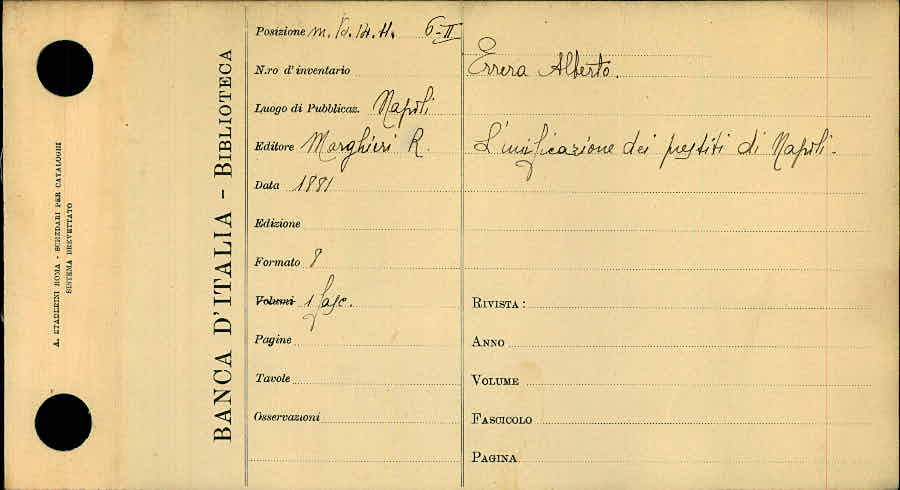 A. STADERINI ROMA - SCHEDARI PER CATALOGHI
SISTEMA BREVETTATO
BANCA D'ITALIA - BIBLIOTECA
Posizione 6-II
N.ro d'inventario
Luogo di Pubblicaz. Napoli
Editore Marghieri R.
Data 1881
Edizione
Formato 8
Volumi 1 fasc.
Pagine
Tavole
Osservazioni
Errera Alberto.
L'unificazione dei prestiti di Napoli.
RIVISTA:
ANNO
VOLUME
FASCICOLO
PAGINA